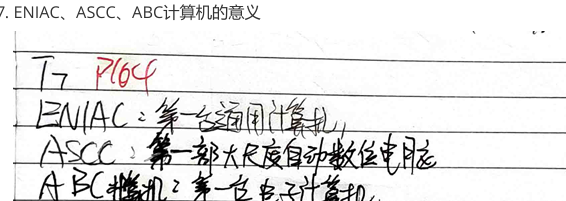 7. ENIAC、ASCC、ABC计算机的意义
T7 P164
ENIAC：第一台通用计算机，
ASCC：第一部大尺度自动数位电脑
ABC计算机：第一台电子计算机，